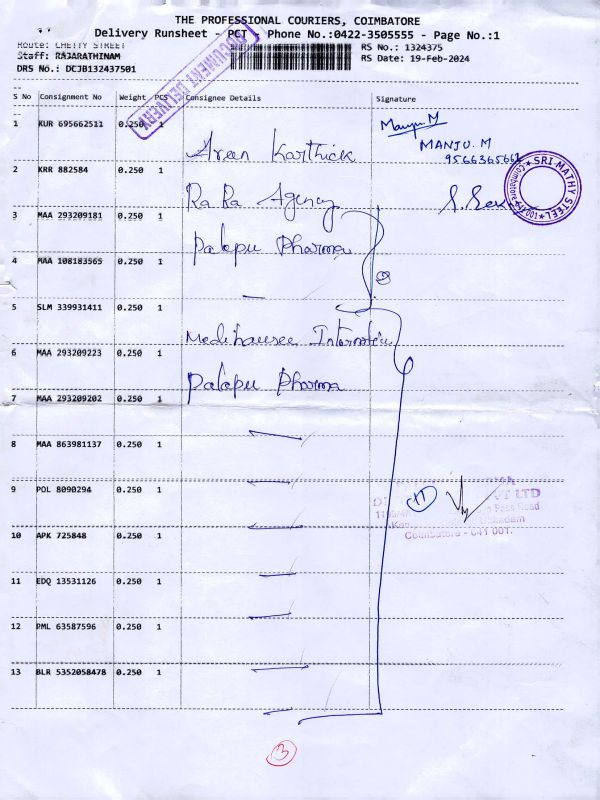 THE PROFESSIONAL COURIERS, COIMBATORE
Delivery Runsheet - PCT Phone No.:0422-3505555 - Page No.:1
Route: CHETTY STREET
RS No.: 1324375
Staff: RAJARATHINAM
RS Date: 19-Feb-2024
DRS No.: DCJB132437501
DOCUMENT DELIVERY
S No Consignment No Weight PCS Consignee Details Signature
1 KUR 695662511 0.250 1
Manju M
MANJU. M
Arun Karthick
2 KRR 882584 0.250 1
SRI MATHY STEEL
Coimbatore
Ra Ba Agency
3 MAA 293209181 0.250 1
Palepu Pharma
4 MAA 108183565 0.250 1
5 SLM 339931411 0.250 1
6 MAA 293209223 0.250 1
Palepu Pharma
7 MAA 293209202 0.250 1
8 MAA 863981137 0.250 1
9 POL 8090294 0.250 1
11
VT LTD
Pass Road
Ukkadam
Coimbatore - 641 001.
10 APK 725848 0.250 1
11 EDQ 13531126 0.250 1
12 PML 63587596 0.250 1
13 BLR 5352058478 0.250 1
3